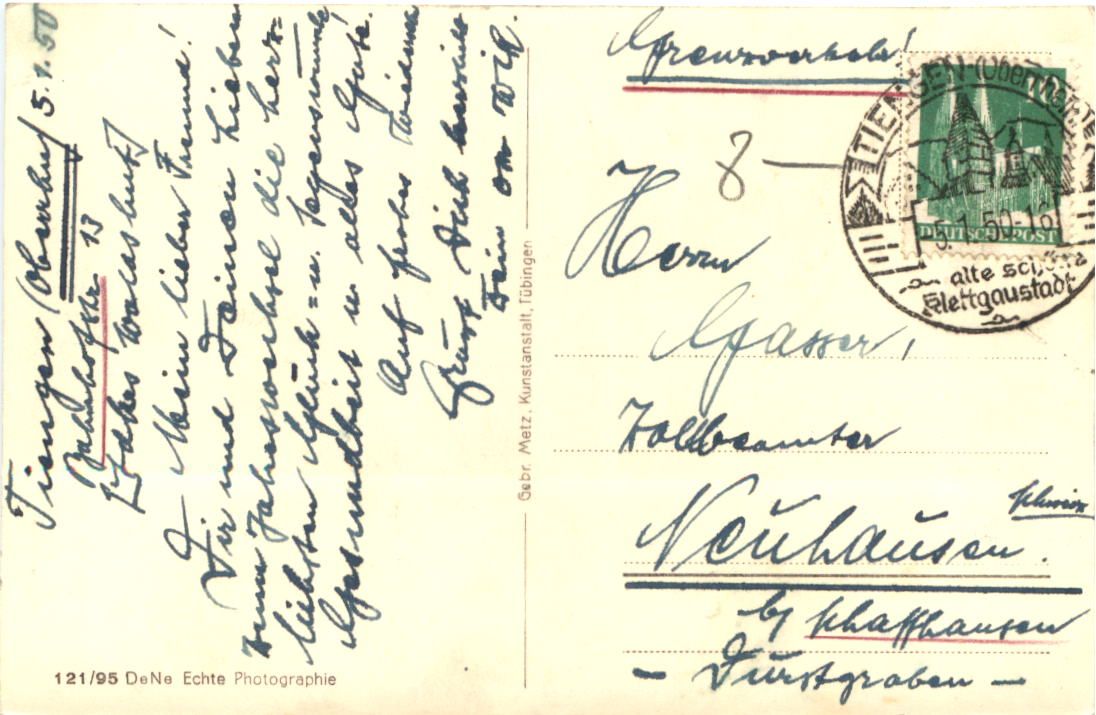 Tiengen (Oberrhn) 5.1.50
Bahnhofstr. 13
(Lkr Waldshut)
Mein lieber Freund!
Dir und Deinen Lieben
zum Jahreswechsel die herz=
lichsten Glück= u. Segenswünsche
Gesundheit u. alles Gute.
Auf frohes Wiedersehn
Grüsst Dich herzlich
Dein
Gebr. Metz, Kunstanstalt, Tübingen
121/95 DeNe Echte Photographie
Grenzverkehr!
8 —
TIENGEN-(Oberrhein)
5.1.50-16
alte schöne
Klettgaustadt
DEUTSCHE POST
Herrn
Gasser,
Zollbeamter
Neuhausen.
Schweiz
by Schaffhausen
- Durstgraben -